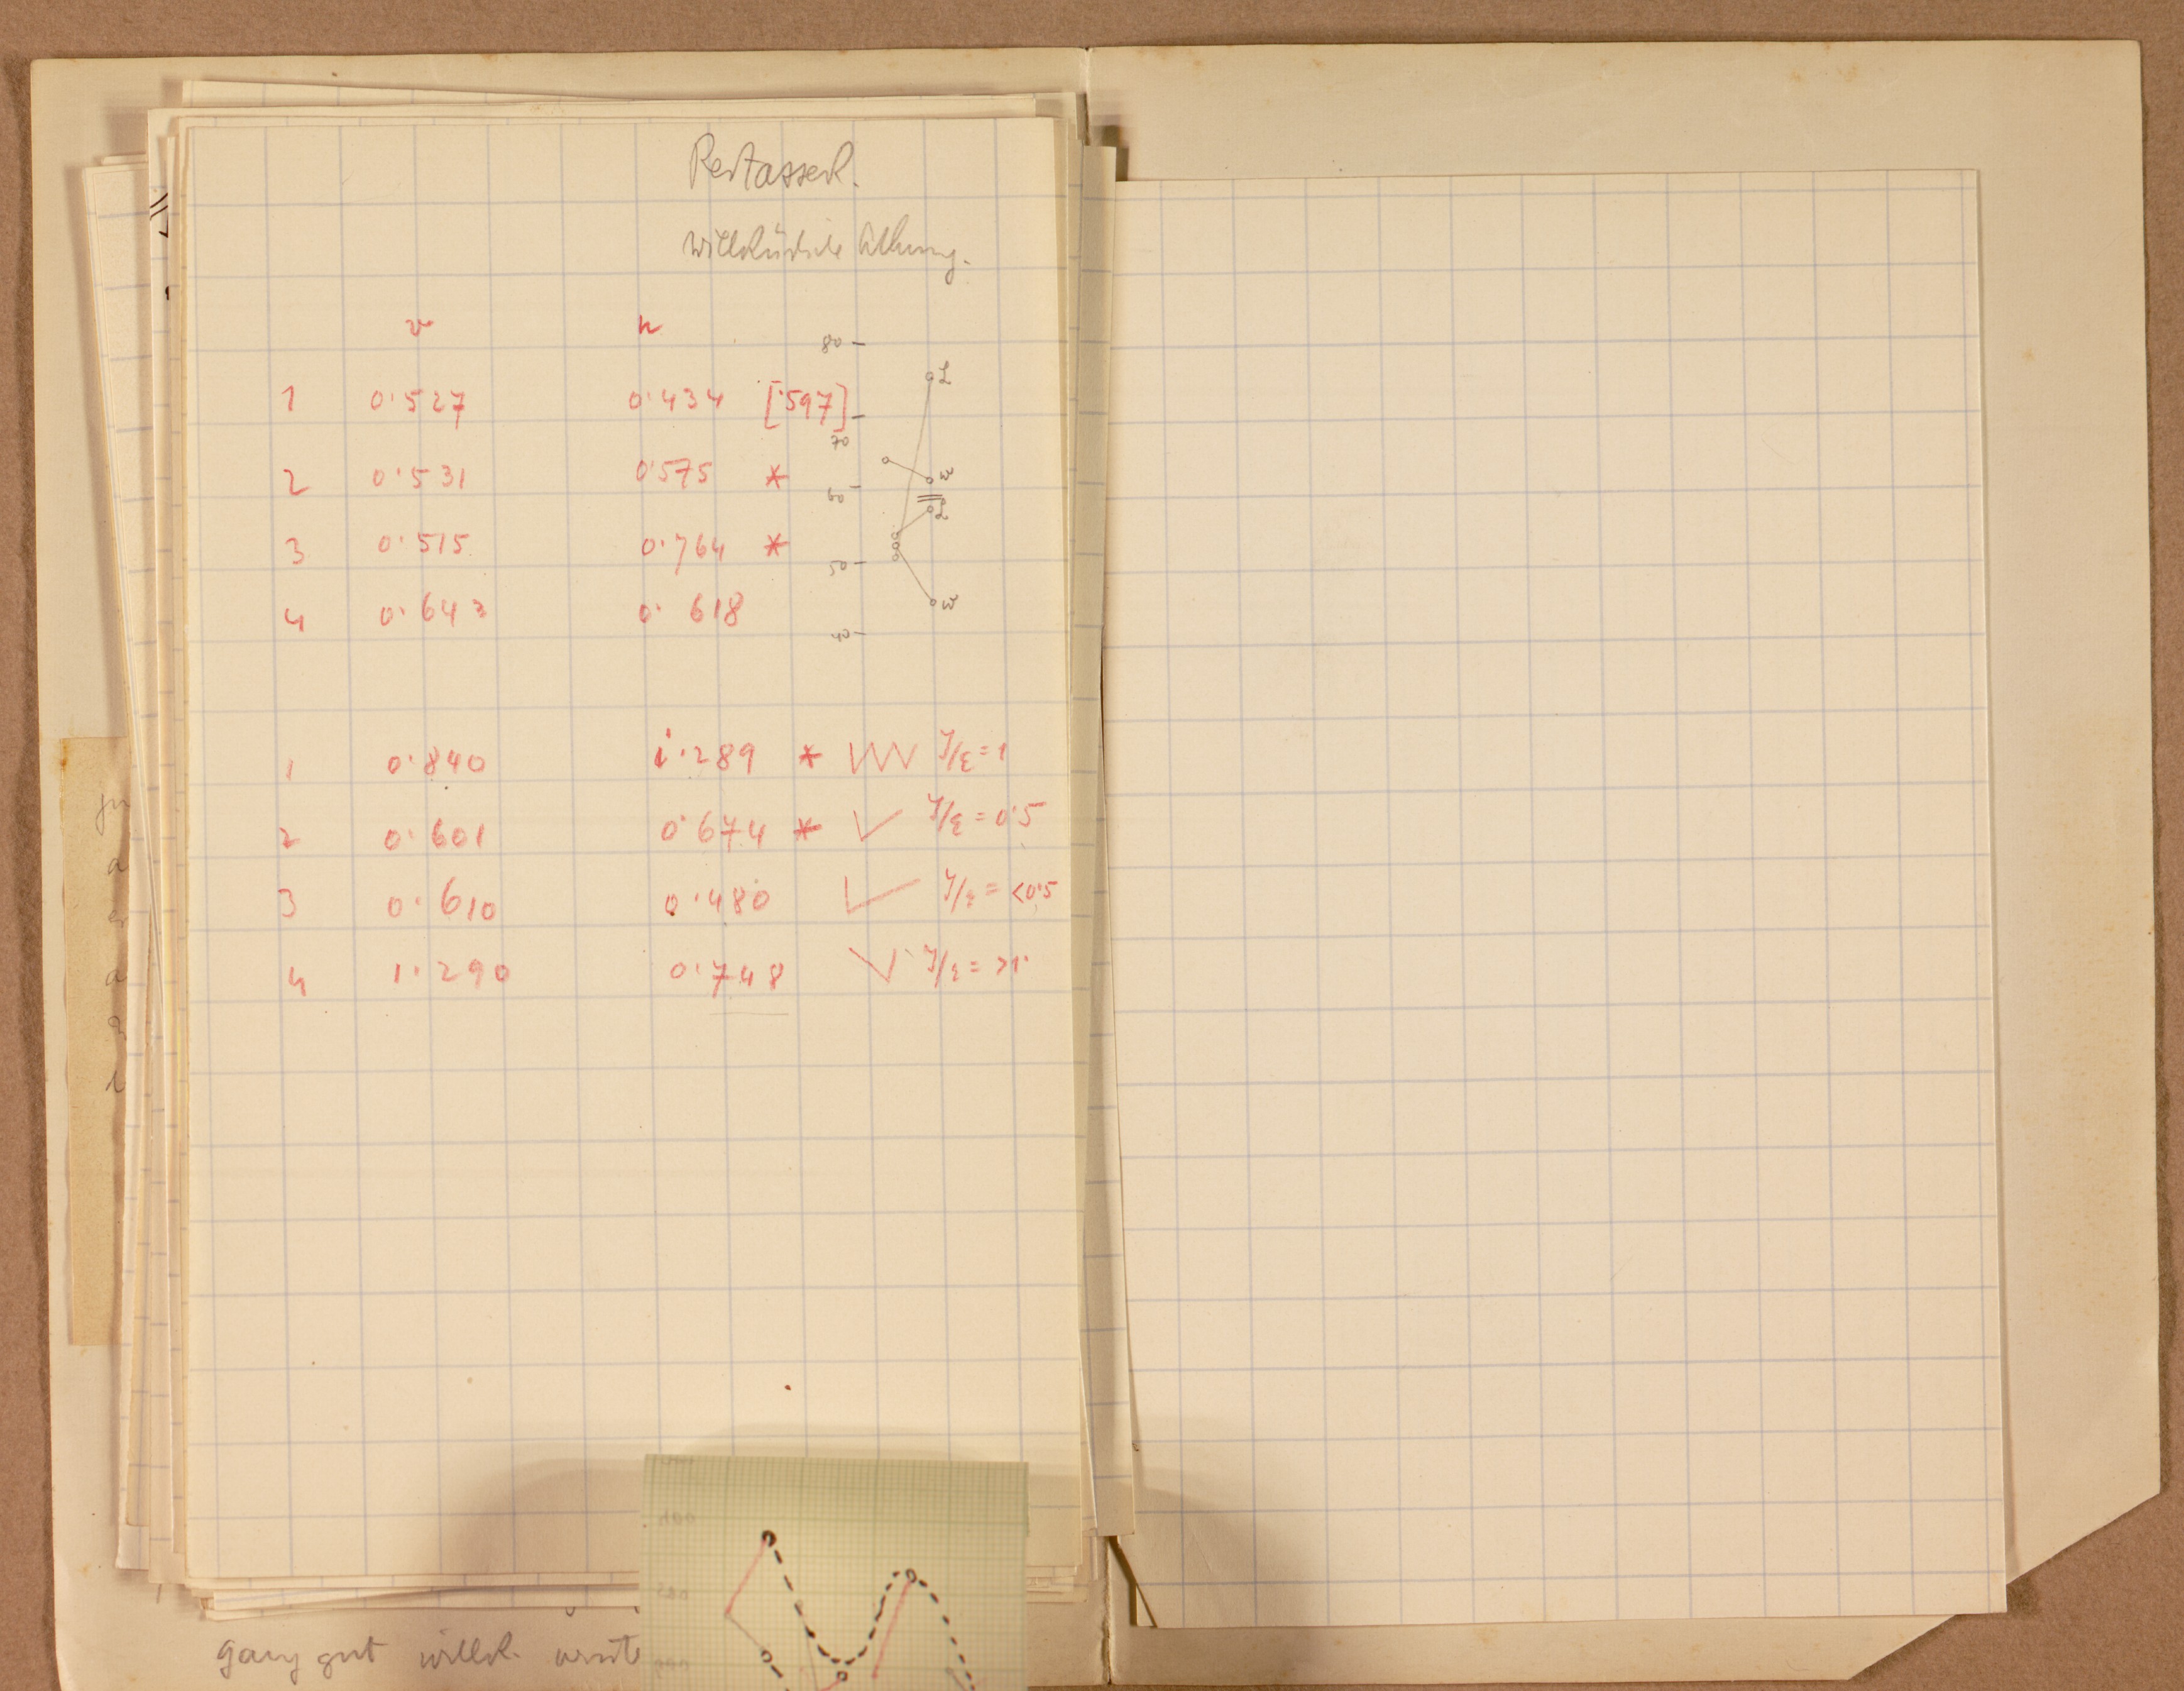 willkürliche Atmung.
v n
80
L
1 0·527 0·434 [·597]
70
2 0·531 0·575 *
w
60
L
3 0·515 0·764 *
50
4 0·643 0·618
w
40
1 0·840 1·289 * J/E = 1
2 0·601 0·674 * J/E = 0·5
3 0·610 0·480 J/E = <0·5
4 1·290 0·748 J/E = >1·
ganz gut willk.